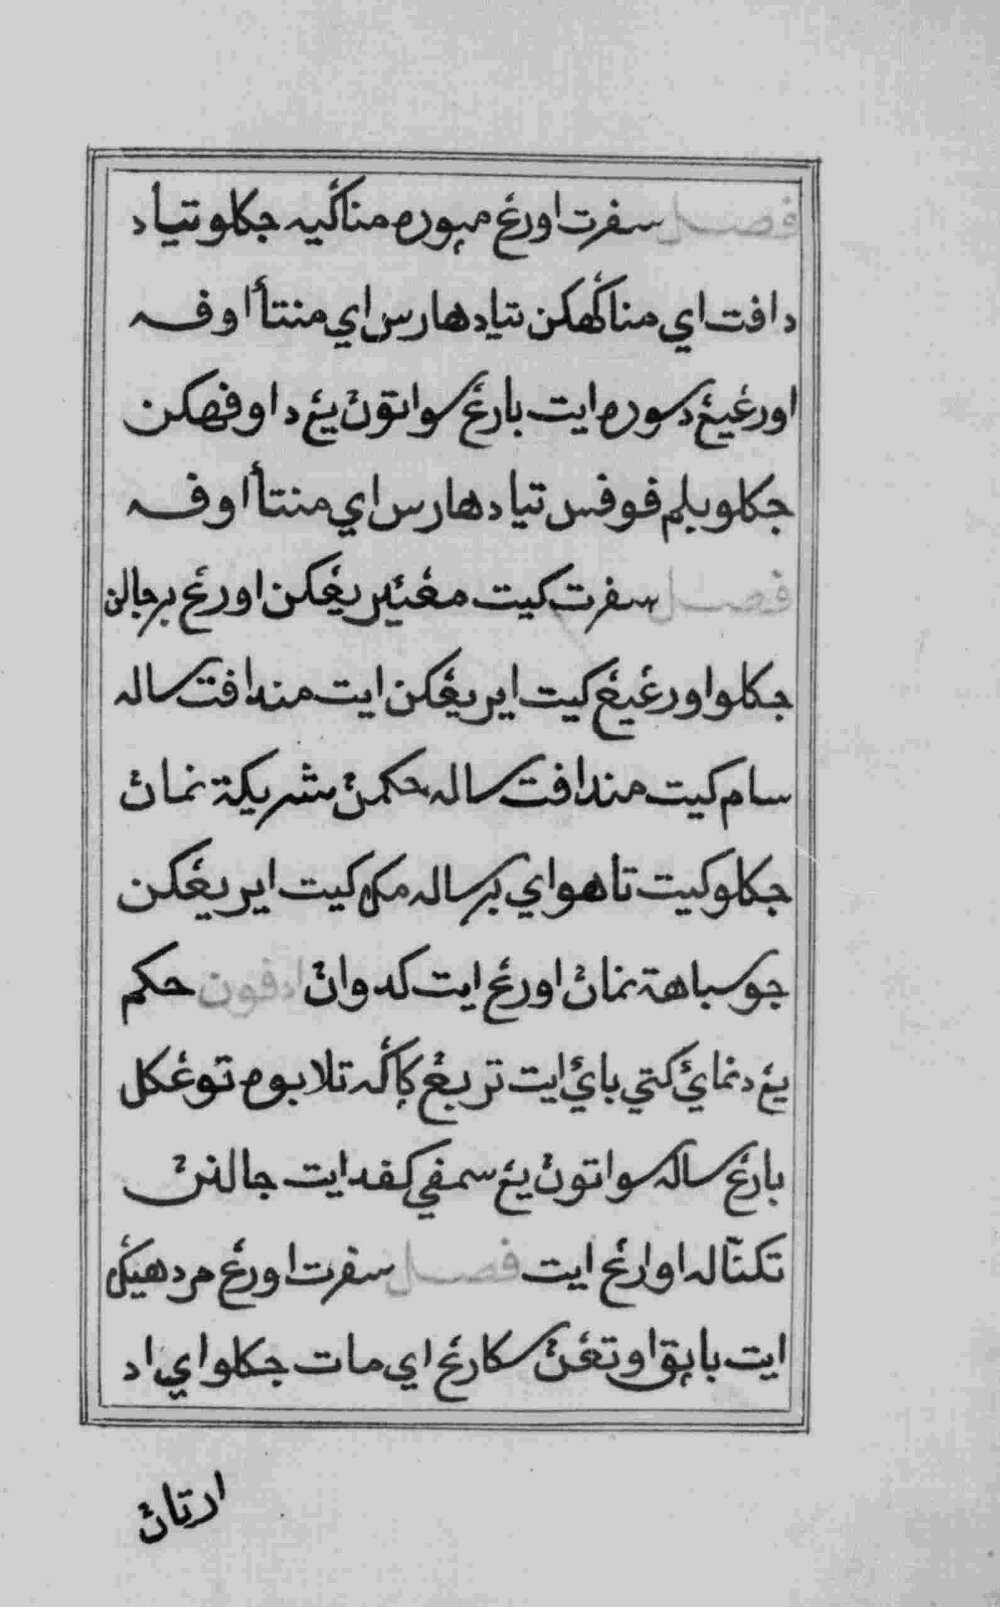 فصل سفرت اورڠ مپوره مناݢيه جكلو تياد
دافت اي مناݢهكن تياد هارس اي منتأ اوفه
اورڠيڠ دسوره ايت بارڠ سواتون يڠ داوفهكن
جكلو بلم فوفس تياد هارس اي منتأ اوفه
فصل سفرت كيت مڠئيريڠكن اورڠ برجالن
جكلو اورڠيڠ كيت ايريڠكن ايت مندافت ساله
سام كيت مندافت ساله حكمن شريكة نمان
جكلو كيت تاهو اي برساله مك كيت ايريڠكن
جو سباهة نمان اورڠ ايت كدوان ادفون حكم
يڠ دنماي كتي باي ايت تربڠ كاݢه تلابوه توڠكل
بارڠ ساله سواتون يڠ سمفي كفد ايت جالنن
تكنّاله اوارڠ ايت فصل سفرت اورڠ مردهيك
ايت باپق اوتڠن سكارڠ اي مات جكلو اي اد
ارتان